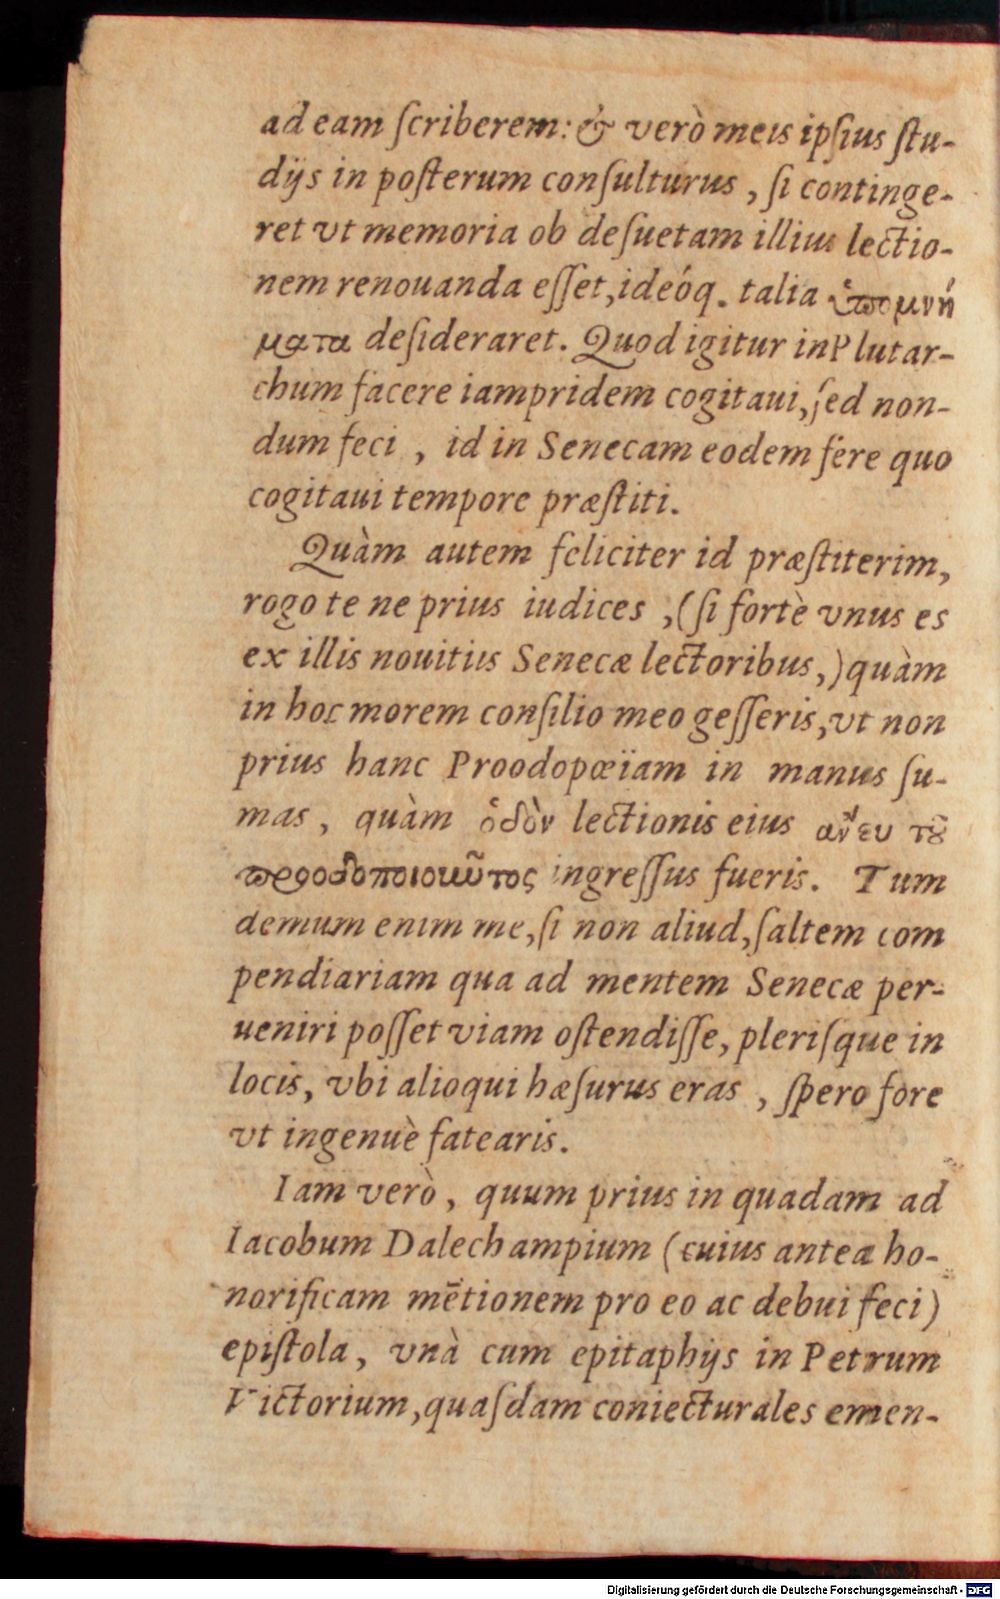 ad eam ſcriberem: & verò meis ipſius ſtu-
dijs in poſterum conſulturus, ſi continge-
ret vt memoria ob deſuetam illius lectio-
nem renouanda eſſet, ideóq. talia ὑπομνή
ματα deſideraret. Quod igitur in Plutar-
chum facere iampridem cogitaui, ſed non-
dum feci, id in Senecam eodem fere quo
cogitaui tempore præſtiti.
Quàm autem feliciter id præſtiterim,
rogo te ne prius iudices, (ſi fortè vnus es
ex illis nouitiis Senecæ lectoribus,) quàm
in hoc morem conſilio meo geſſeris, vt non
prius hanc Proodopœïam in manus ſu-
mas, quàm ὁδὸν lectionis eius ἄνευ τοῦ
προοδοποιοῦντος ingreſſus fueris. Tum
demum enim me, ſi non aliud, ſaltem com
pendiariam qua ad mentem Senecæ per-
ueniri poſſet viam oſtendiſſe, pleriſque in
locis, vbi alioqui hæſurus eras, ſpero fore
vt ingenuè fatearis.
Iam verò, quum prius in quadam ad
Iacobum Dalechampium (cuius antea ho-
norificam mētionem pro eo ac debui feci)
epiſtola, vnà cum epitaphijs in Petrum
Victorium, quaſdam coniecturales emen-
Digitalisierung gefördert durch die Deutsche Forschungsgemeinschaft - DFG